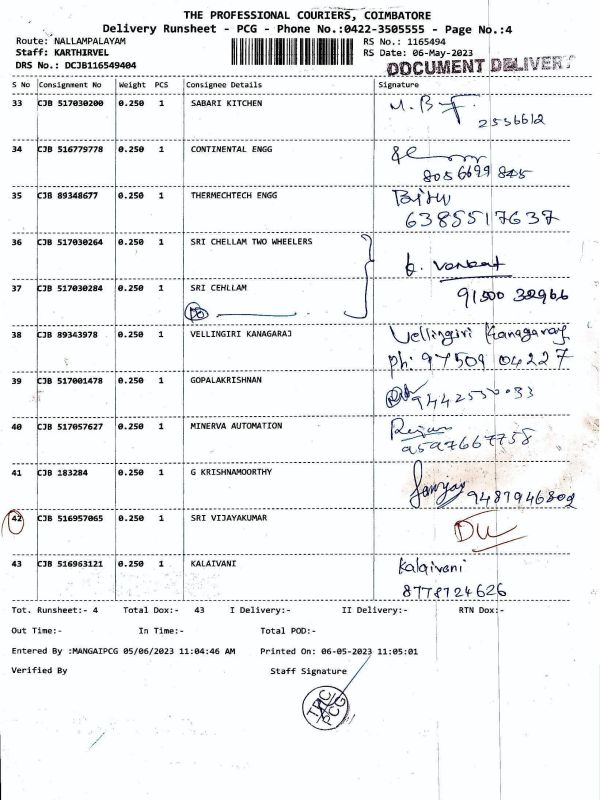 THE PROFESSIONAL COURIERS, COIMBATORE
Delivery Runsheet - PCG - Phone No.:0422-3505555 - Page No.:4
Route: NALLAMPALAYAM RS No.: 1165494
Staff: KARTHIRVEL RS Date: 06-May-2023
DRS No.: DCJB116549404 DOCUMENT DELIVERY
S No Consignment No Weight PCS Consignee Details Signature
33 CJB 517030200 0.250 1 SABARI KITCHEN
2556612
34 CJB 516779778 0.250 1 CONTINENTAL ENGG
8056699845
35 CJB 89348677 0.250 1 THERMECHTECH ENGG
6385517637
36 CJB 517030264 0.250 1 SRI CHELLAM TWO WHEELERS
37 CJB 517030284 0.250 1 SRI CEHLLAM
38 CJB 89343978 0.250 1 VELLINGIRI KANAGARAJ Vellingiri Kanagaraj
ph: 97509 04227
39 CJB 517001478 0.250 1 GOPALAKRISHNAN
40 CJB 517057627 0.250 1 MINERVA AUTOMATION
9597667758
41 CJB 183284 0.250 1 G KRISHNAMOORTHY
9487946802
42 CJB 516957065 0.250 1 SRI VIJAYAKUMAR
43 CJB 516963121 0.250 1 KALAIVANI Kalaivani
8778724626
Tot. Runsheet:- 4 Total Dox:- 43 I Delivery:- II Delivery:- RTN Dox:-
Out Time:- In Time:- Total POD:-
Entered By :MANGAIPCG 05/06/2023 11:04:46 AM Printed On: 06-05-2023 11:05:01
Verified By Staff Signature
TPC
PCG